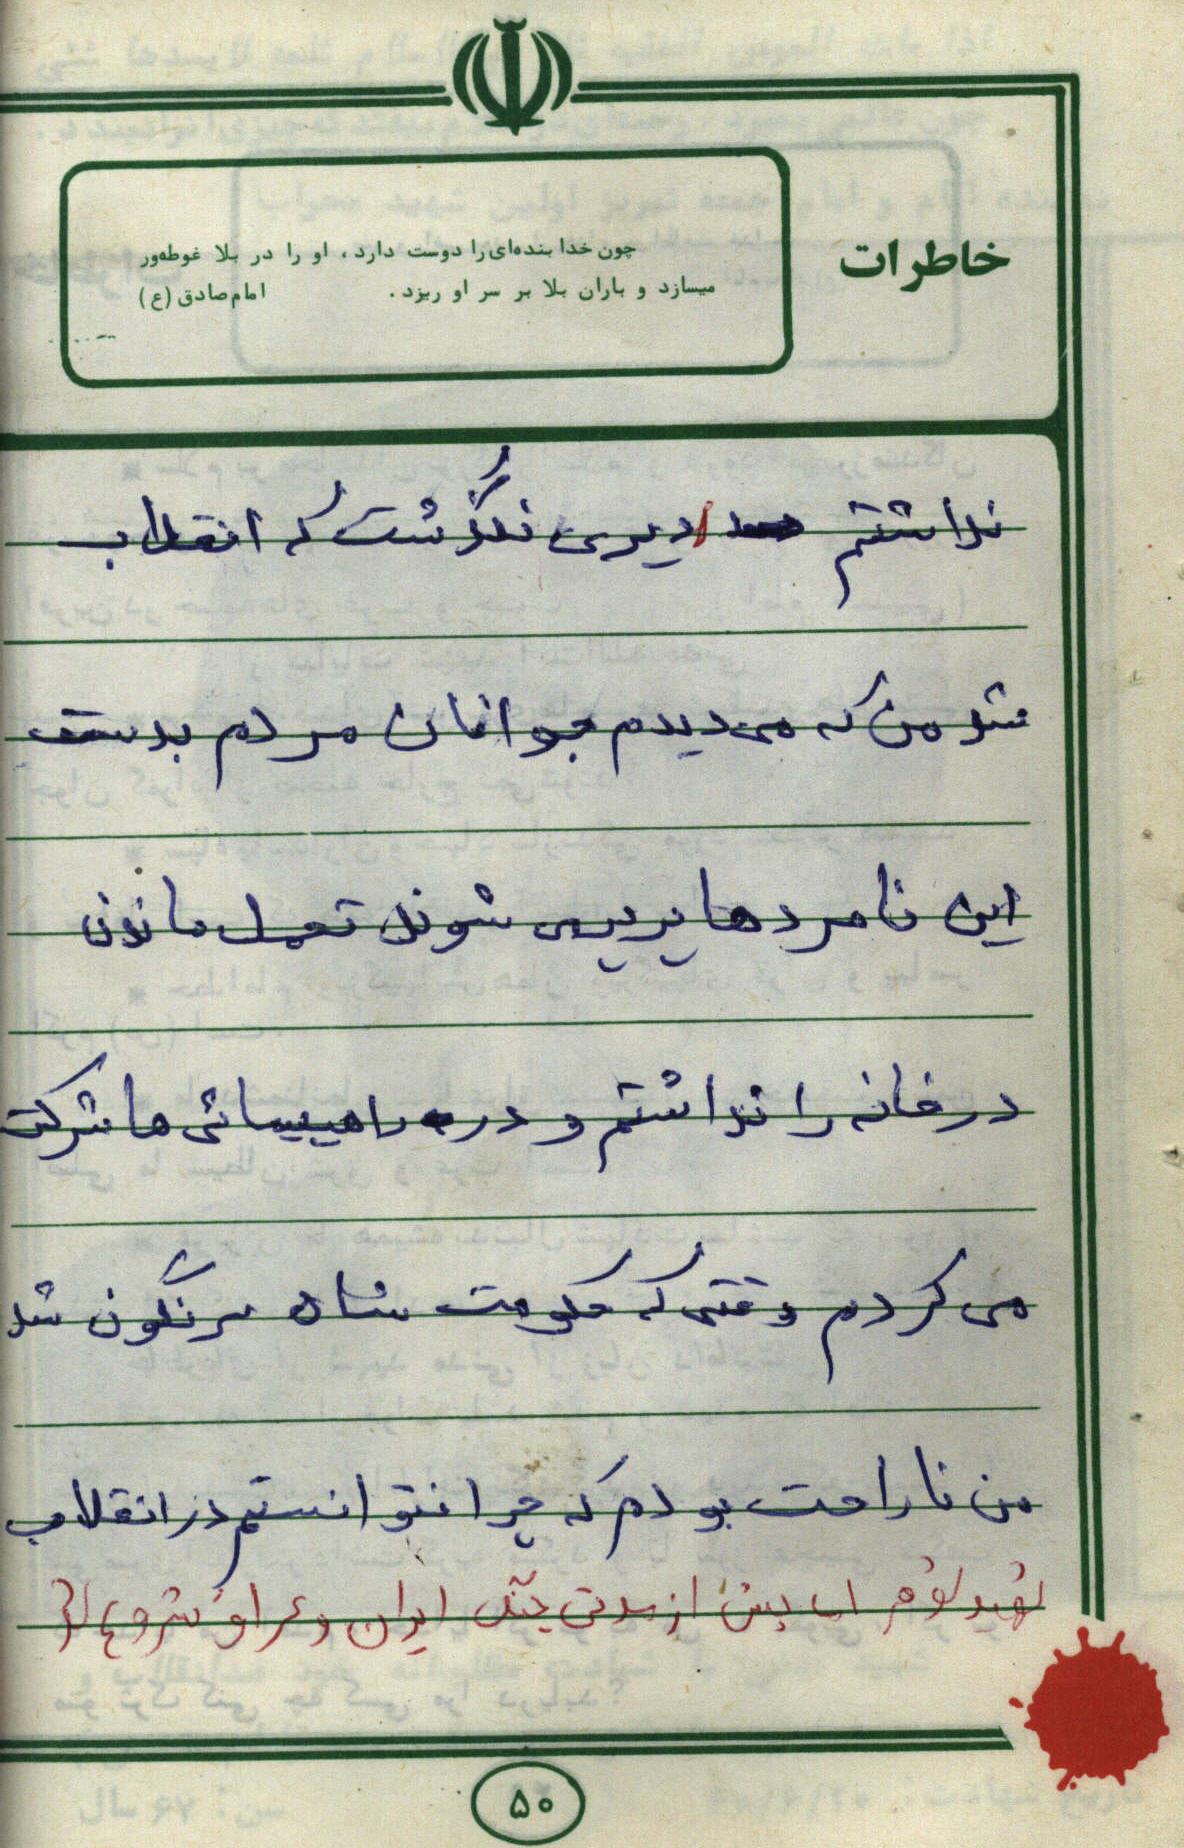 خاطرات
چون خدا بنده‌ای را دوست دارد، او را در بلا غوطه‌ور
میسازد و باران بلا بر سر او ریزد. امام صادق (ع)
نداشتم دیری نگذشت که انقلاب
شد من که می‌دیدم جوانان مردم بدست
این نامردها پرپر می شوند تحمل ماندن
در خانه را نداشتم و در راهپیمائی ها شرکت
می کردم وقتی که حکومت شاه سرنگون شد
من ناراحت بودم که چرا نتوانستم در انقلاب
شهید شوم اما پس از مدتی جنگ ایران و عراق شروع شد
۵۰